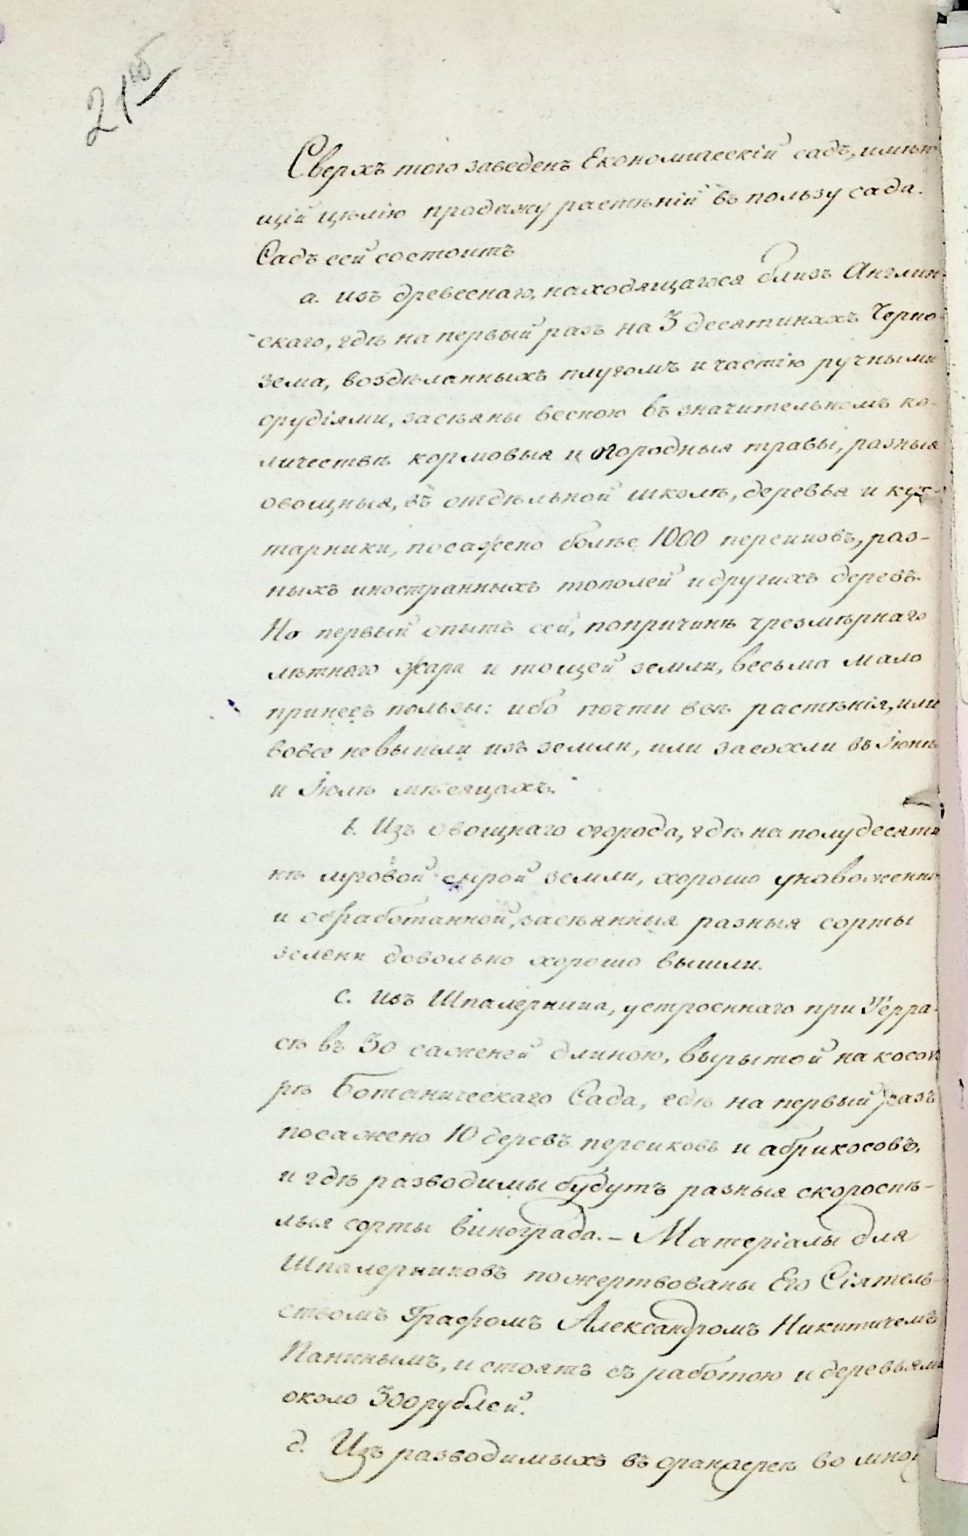 21об
Сверхъ того заведенъ Економическій садъ, имѣю
щій цѣлію продажу растѣній въ пользу сада.
Садъ сей состоитъ
а. изъ древеснаго, находящагося близъ Англин-
скаго, гдѣ на первый разъ на 3 десятинахъ Черно-
зема, воздѣланныхъ плугомъ и частію ручными
орудіями, засѣяны весною въ значительномъ ко-
личествѣ кормовыя и огородныя травы, разныя
овощныя, въ отдѣльной школѣ, деревья и кус-
тарники, посажено болѣе 1000 персиковъ, раз-
ныхъ иностранныхъ тополей и другихъ деревъ.
Но первый опытъ сей, попричинѣ чрезмѣрнаго
лѣтняго жара и тощей земли, весьма мало
принесъ пользы: ибо почти всѣ растѣнія, или
вовсе невышли изъ земли, или засохли въ Іюнѣ
и Іюлѣ мѣсяцахъ.
b. Изъ овощнаго огорода, гдѣ на полудесяти
нѣ луговой сырой земли, хорошо унавоженно
и обработанной, засѣянныя разныя сорты
зелени довольно хорошо вышли.
с. Изъ Шпалерника, устроеннаго при Терра-
сѣ въ 30 саженей длиною, вырытой на косог
рѣ Ботаническаго Сада, гдѣ на первый разъ
посажено 10 деревъ персиковъ и абрикосовъ,
и гдѣ разводимы будутъ разныя скороспѣ-
лыя сорты винограда. – Матеріалы для
Шпалерниковъ пожертвованы Его Сіятель-
ствомъ Графомъ Александромъ Никитичемъ
Панинымъ, и стоятъ съ работою и деревьями
около 300 рублей.
d. Изъ разводимыхъ въ оранжереѣ во мног